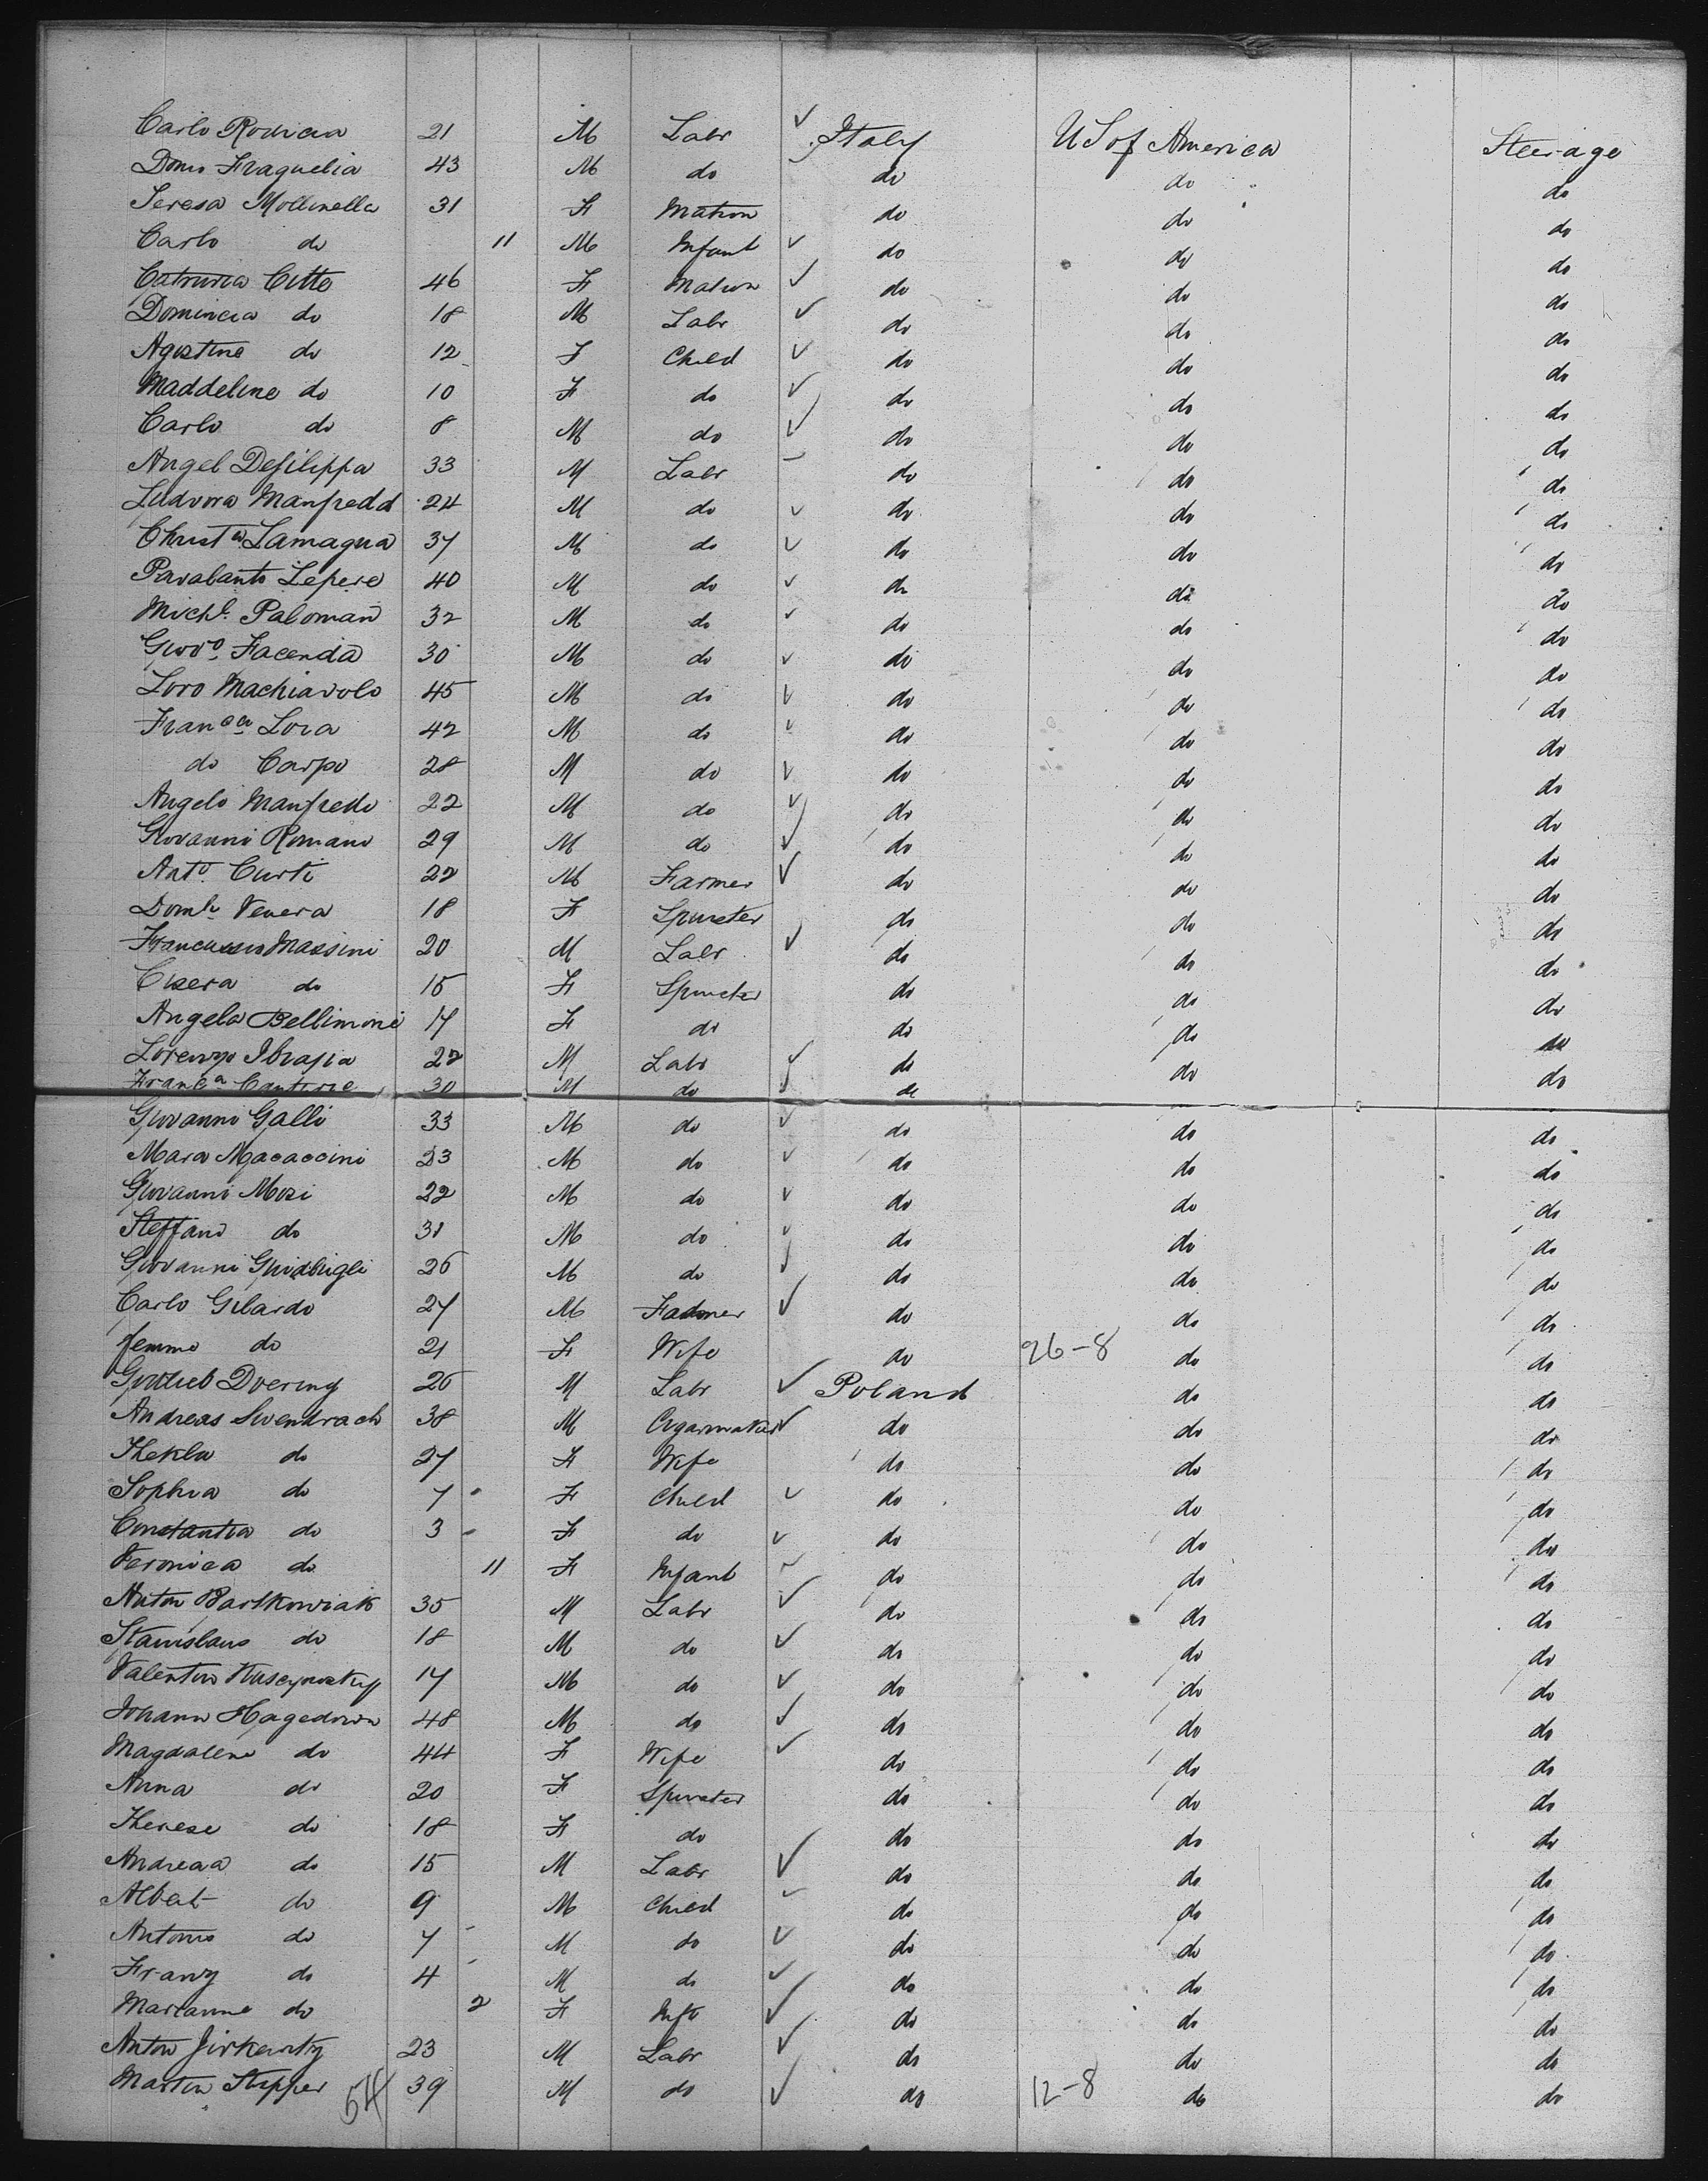 Carlo Rovicia 21 M Labr ✓ Italy U S of America Steerage
Domo Fraguelia 43 M do do do do
Teresa Mollinella 31 F Matron do do do
Carlo do 11 M Infant ✓ do do do
Catruria Citto 46 F Matron ✓ do do do
Dominica do 18 M Labr ✓ do do do
Agostine do 12 F Child ✓ do do do
Maddeline do 10 F do ✓ do do do
Carlo do 8 M do ✓ do do do
Angel Defilippa 33 M Labr do do do
Ludovra Manfredd 24 M do ✓ do do do
Christa Lamagua 37 M do ✓ do do do
Pavalanto Lepere 40 M do ✓ do do do
Michl. Paloman 32 M do ✓ do do do
Giovo Facenda 30 M do ✓ do do do
Loro Machiavolo 45 M do ✓ do do do
Franca Lora 42 M do ✓ do do do
do Carpo 28 M do ✓ do do do
Angelo Manfredo 22 M do ✓ do do do
Giovanni Romano 29 M do ✓ do do do
Anto. Curti 22 M Farmer ✓ do do do
Domk Venera 18 F Spinster do do do
Massini 20 M Labr ✓ do do do
Cisera do 15 F Spinster do do do
Angela Bellimoni 17 F do do do do
Lorenzo Ibrasia 22 M Labr ✓ do do do
Franca 30 M do ✓ do
Giovanni Galli 33 M do ✓ do do do
Mara Macaccini 23 M do ✓ do do do
Giovanni Mosi 22 M do ✓ do do do
Steffano do 31 M do ✓ do do do
Giovanni 26 M do ✓ do do do
Carlo Gilardo 27 M Farmer ✓ do do do
Jemmo do 21 F Wife do 26-8 do do
Gottlieb Doering 26 M Labr ✓ Poland do do
Andreas Swendrach 38 M Cigarmaker ✓ do do do
Thekla do 27 F Wife do do do
Sophia do 7 F Child ✓ do do do
Constantia do 3 F do ✓ do do do
Veronica do 11 F Infant do do do
Anton Bartkowiak 35 M Labr ✓ do do do
Stanislaus do 18 M do ✓ do do do
Valentin 17 M do ✓ do do do
Johann Hagedorn 48 M do ✓ do do do
Magdalene do 44 F Wife ✓ do do do
Anna do 20 F Spinster do do do
Therese do 18 F do do do do
Andreaa do 15 M Labr ✓ do do do
Albert do 9 M Child do do do
Antonio do 7 M do ✓ do do do
Franz do 4 M do ✓ do do do
Marianne do 2 F Inft ✓ do do do
Anton 23 M Labr ✓ do do do
Martin Stepper 54 39 M do ✓ do 12-8 do do